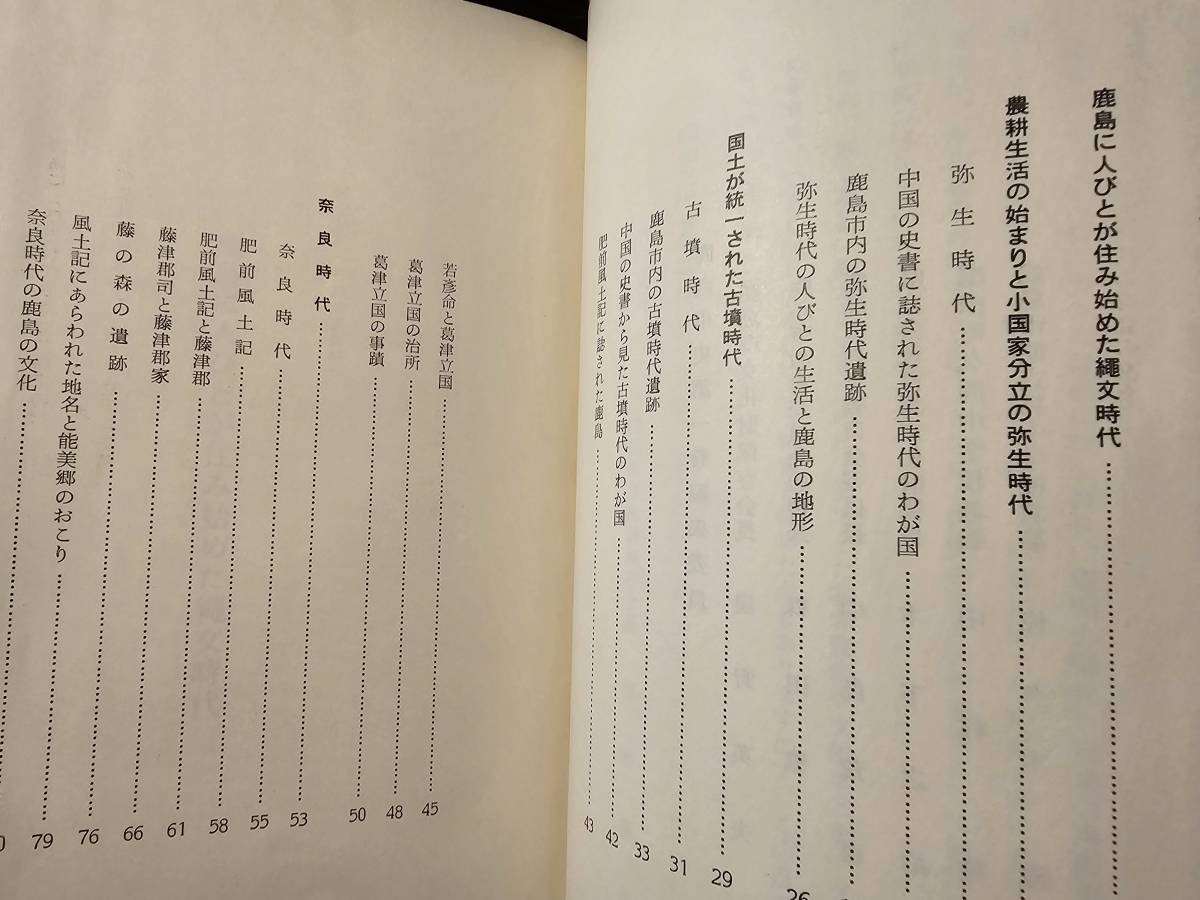 鹿島に人びとが住み始めた縄文時代
農耕生活の始まりと小国家分立の弥生時代
弥生時代
中国の史書に誌された弥生時代のわが国
鹿島市内の弥生時代遺跡
弥生時代の人びとの生活と鹿島の地形 26
国土が統一された古墳時代 29
古墳時代 31
鹿島市内の古墳時代遺跡 33
中国の史書から見た古墳時代のわが国 42
肥前風土記に誌された鹿島 43
若彦命と葛津立国 45
葛津立国の治所 48
葛津立国の事蹟 50
奈良時代
奈良時代 53
肥前風土記 55
肥前風土記と藤津郡 58
藤津郡司と藤津郡家 61
藤の森の遺跡 66
風土記にあらわれた地名と能美郷のおこり 76
奈良時代の鹿島の文化 79